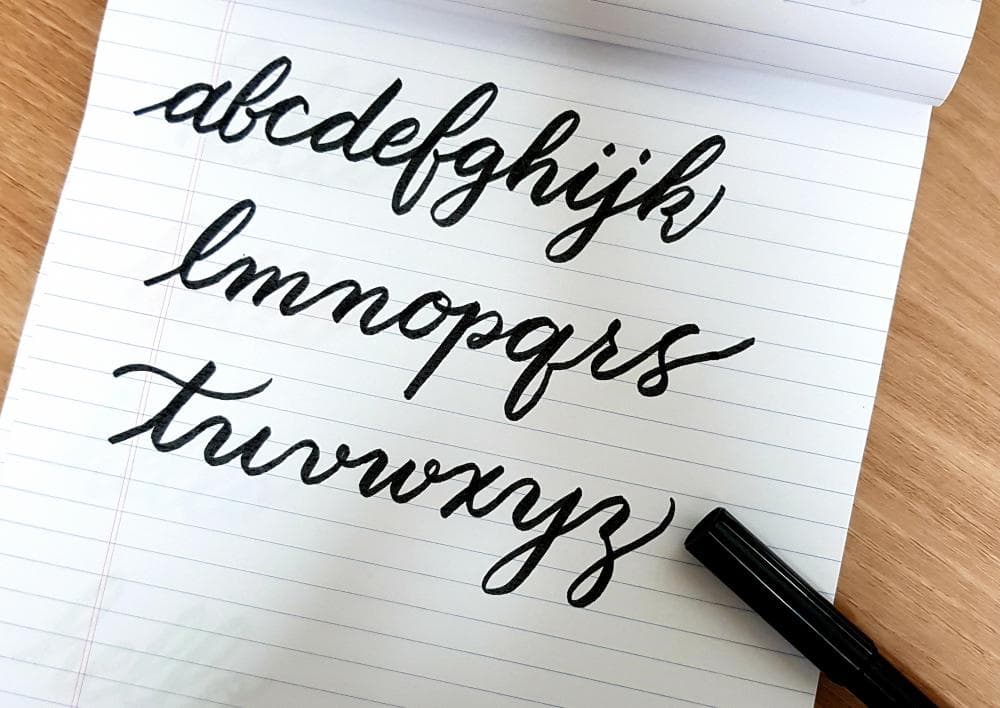 abcdefghijk
lmnopqrs
tuvwxyz